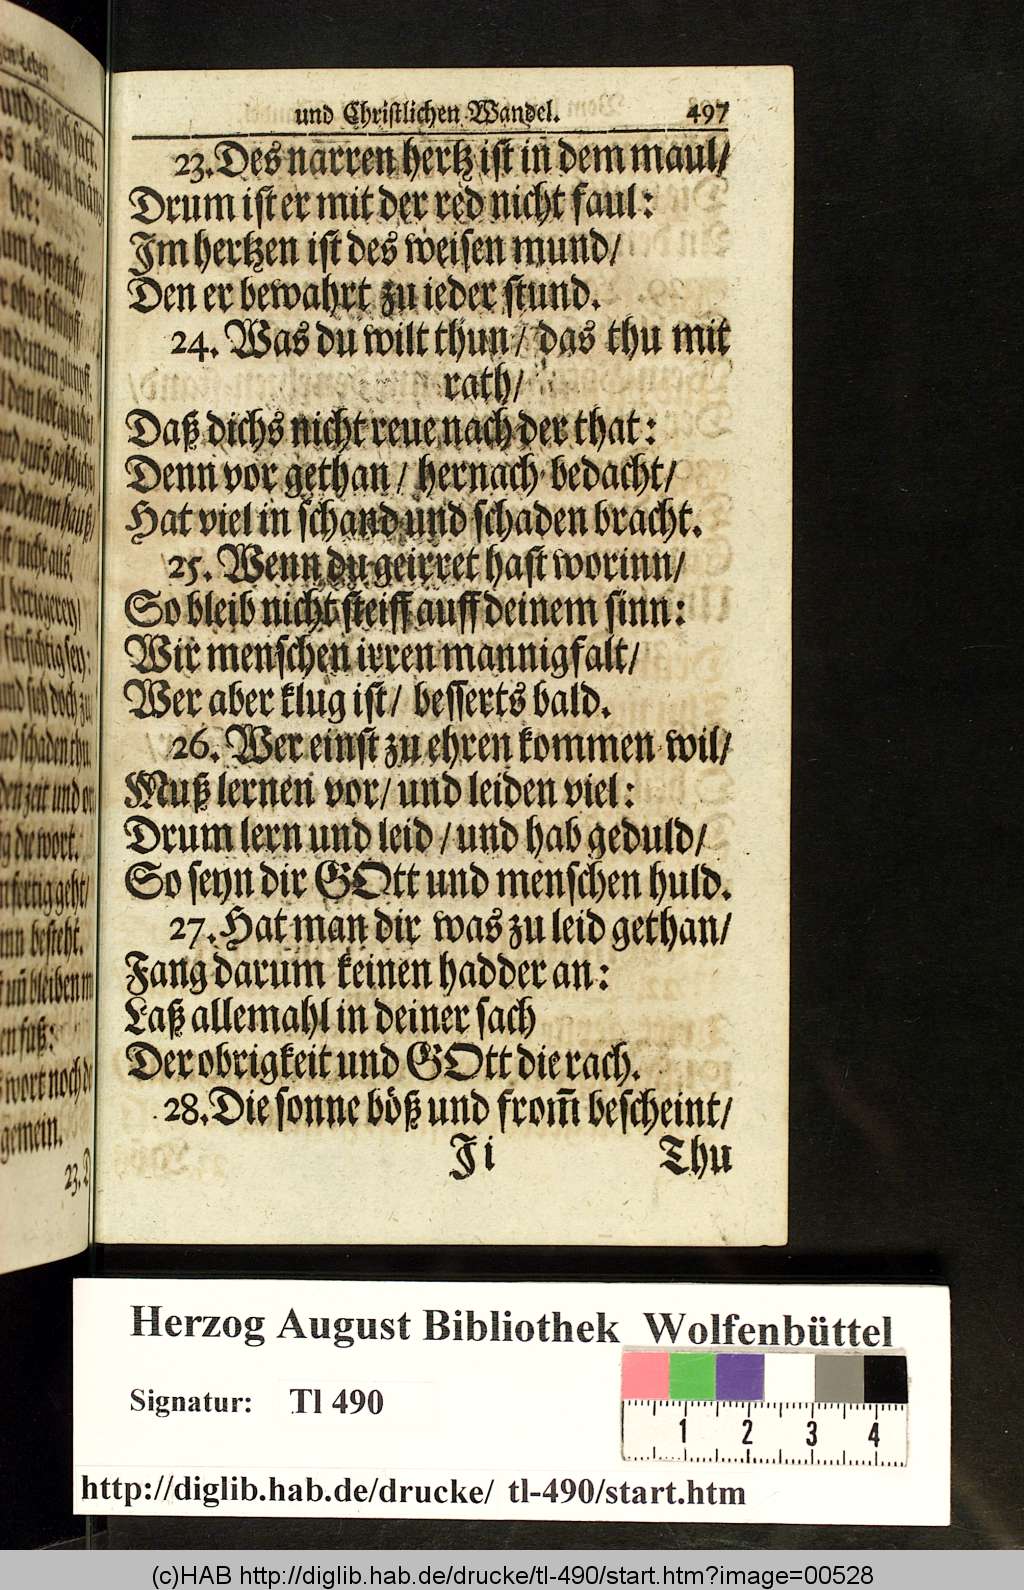 und Christlichen Wandel. 497
23. Des narren hertz ist in dem maul/
Drum ist er mit der red nicht faul:
Im hertzen ist des weisen mund/
Den er bewahrt zu ieder stund.
24. Was du wilt thun/ das thu mit
rath/
Daß dichs nicht reue nach der that:
Denn vor gethan/ hernach bedacht/
Hat viel in schand und schaden bracht.
25. Wenn du geirret hast worinn/
So bleib nicht steiff auff deinem sinn:
Wir menschen irren mannigfalt/
Wer aber klug ist/ besserts bald.
26. Wer einst zu ehren kommen wil/
Muß lernen vor/ und leiden viel:
Drum lern und leid/ und hab geduld/
So seyn dir GOtt und menschen huld.
27. Hat man dir was zu leid gethan/
Fang darum keinen hadder an:
Laß allemahl in deiner sach
Der obrigkeit und GOtt die rach.
28. Die sonne böß und from̃ bescheint/
Ji Thu
Herzog August Bibliothek Wolfenbüttel
Signatur: Tl 490
1 2 3 4
http://diglib.hab.de/drucke/ tl-490/start.htm
(c)HAB http://diglib.hab.de/drucke/tl-490/start.htm?image=00528